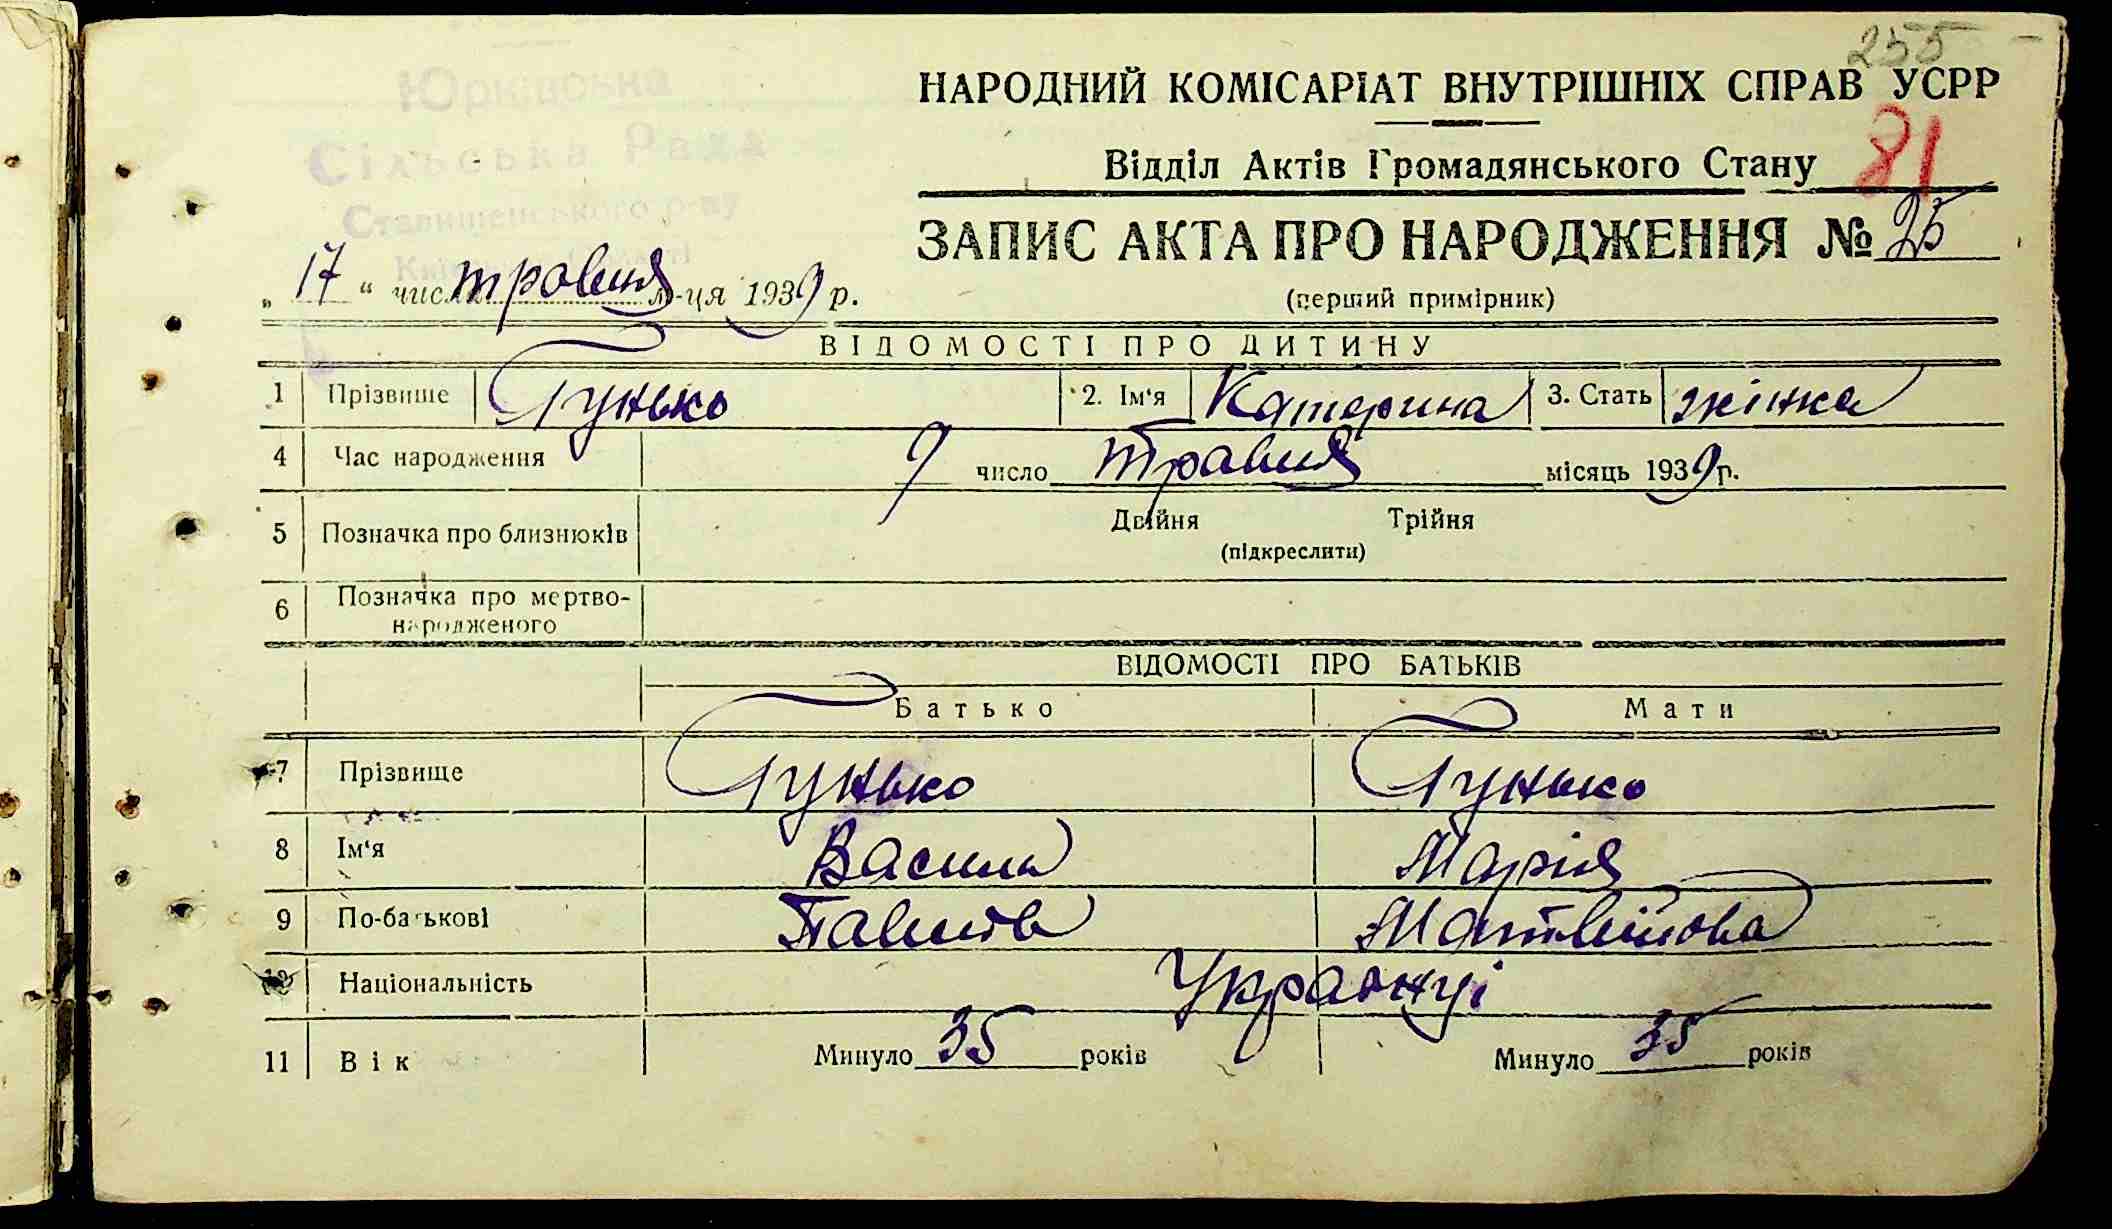 255
Юрківська
Сільська Рада
Ставищенського р-ну
Київської області
НАРОДНИЙ КОМІСАРІАТ ВНУТРІШНІХ СПРАВ УСРР
Відділ Актів Громадянського Стану
81
ЗАПИС АКТА ПРО НАРОДЖЕННЯ № 25
„ 17 “ числа травня м-ця 1939 р.
(перший примірник)
ВІДОМОСТІ ПРО ДИТИНУ
1 Прізвище Гунько 2. Ім'я Катерина 3. Стать жінка
4 Час народження 9 число травня місяць 1939 р.
5 Позначка про близнюків Двійня Трійня
(підкреслити)
6 Позначка про мертво-
народженого
ВІДОМОСТІ ПРО БАТЬКІВ
Батько Мати
7 Прізвище Гунько Гунько
8 Ім'я Василь Марія
9 По-батькові Матвійова
10 Національність Українці
11 Вік Минуло 35 років Минуло 35 років